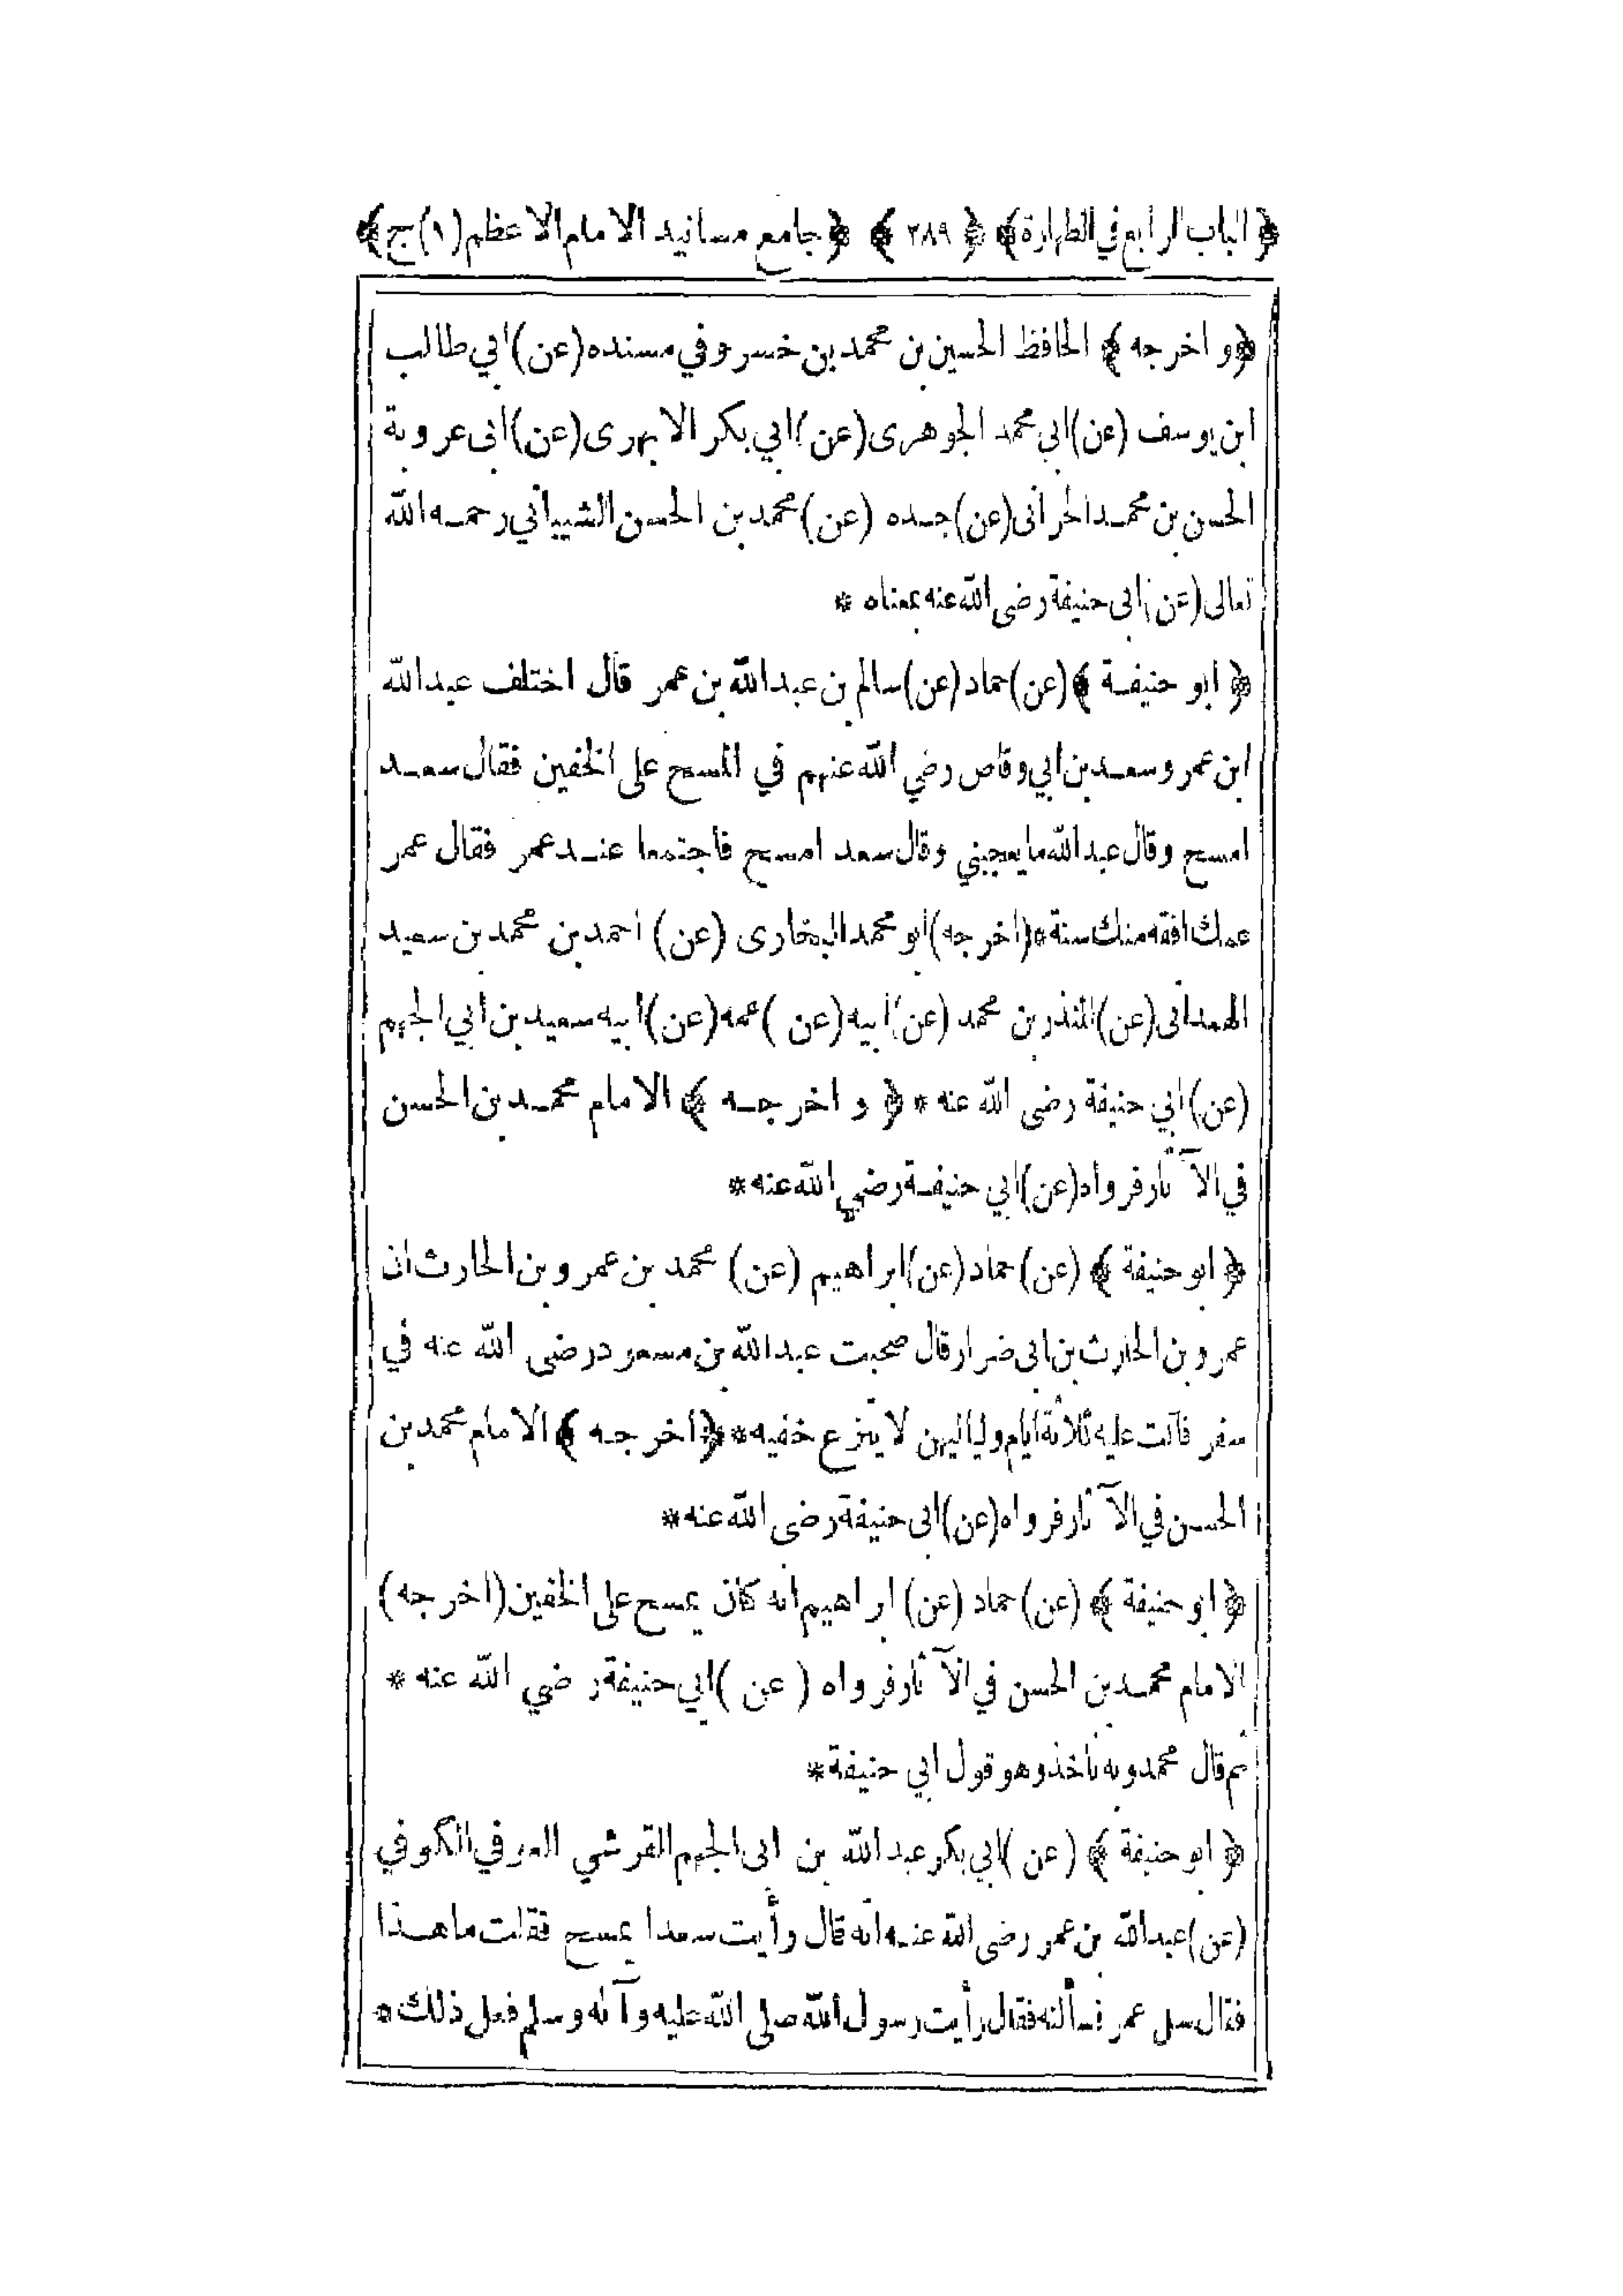 ﴿ الباب الرابع في الطهارة ﴾ ﴿ ٢٨٩ ﴾ ﴿ جامع مسانيد الامام الاعظم (١) ج ﴾
﴿ و اخرجه ﴾ الحافظ الحسين بن محمد بن خسرو في مسنده (عن) ابي طالب
ابن يوسف (عن) ابي محمد الجوهرى (عن) ابي بكر الابهرى (عن) ابى عروبة
الحسن بن محمد الحرانى (عن) جده (عن) محمد بن الحسن الشيباني رحمه الله
تعالى (عن) ابى حنيفة رضى الله عنه بمعناه *
﴿ ابو حنيفة ﴾ (عن) حماد (عن) سالم بن عبد الله بن عمر قال اختلف عبد الله
ابن عمر وسعد بن ابي وقاص رضي الله عنهم في المسح على الخفين فقال سعد
امسح وقال عبد الله ما يعجبني وقال سعد امسح فاجتمعا عند عمر فقال عمر
عمك افقه منك سنة * (اخرجه) ابو محمد البخارى (عن) احمد بن محمد بن سعيد
الهمدانى (عن) المنذر بن محمد (عن) ابيه (عن) عمه (عن) ابيه سعيد بن ابي الجهم
(عن) ابي حنيفة رضى الله عنه * ﴿ و اخرجه ﴾ الامام محمد بن الحسن
في الآثار فرواه (عن) ابي حنيفة رضي الله عنه *
﴿ ابو حنيفة ﴾ (عن) حماد (عن) ابراهيم (عن) محمد بن عمرو بن الحارث ان
عمرو بن الحارث بن ابى ضرار قال صحبت عبد الله بن مسعود رضى الله عنه في
سفر فاتت عليه ثلاثة ايام ولياليهن لا ينزع خفيه * ﴿ اخرجه ﴾ الامام محمد بن
الحسن في الآثار فرواه (عن) ابى حنيفة رضى الله عنه *
﴿ ابو حنيفة ﴾ (عن) حماد (عن) ابراهيم انه كان يمسح على الخفين (اخرجه)
الامام محمد بن الحسن في الآثار فرواه (عن) ابي حنيفة رضي الله عنه *
ثم قال محمد وبه نأخذ وهو قول ابي حنيفة *
﴿ ابو حنيفة ﴾ (عن) ابي بكر عبد الله بن ابى الجهم القرشي العوفي الكوفي
(عن) عبد الله بن عمر رضى الله عنه انه قال رأيت سعدا يمسح فقلت ما هذا
فقال سل عمر فسألته فقال رأيت رسول الله صلى الله عليه وآله وسلم فعل ذلك *